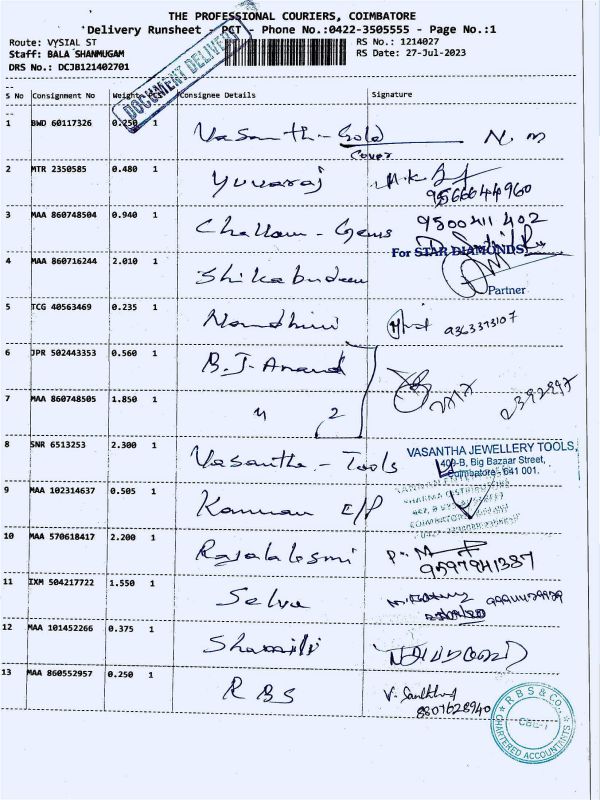 THE PROFESSIONAL COURIERS, COIMBATORE
Delivery Runsheet - PCT - Phone No.:0422-3505555 - Page No.:1
Route: VYSIAL ST
RS No.: 1214027
Staff: BALA SHANMUGAM
RS Date: 27-Jul-2023
DRS No.: DCJB121402701
DOCUMENT DELIVERY
S No Consignment No Weight Consignee Details Signature
1 BWD 60117326 0.250 1 Vasanth - Gold N. m
Cover
2 MTR 2350585 0.480 1 Yuvaraj
9566644960
3 MAA 860748504 0.940 1 Challam - Gems 9500411402
For STAR DIAMONDS
4 MAA 860716244 2.010 1
Partner
5 TCG 40563469 0.235 1 Nandhini 9363373107
6 JPR 502443353 0.560 1 B. J. Anand
7 MAA 860748505 1.850 1 " 2
8 SNR 6513253 2.300 1 Vasantha - Tools VASANTHA JEWELLERY TOOLS,
409-B, Big Bazaar Street,
Coimbatore - 641 001.
9 MAA 102314637 0.505 1 Kannan E/P
10 MAA 570618417 2.200 1 Rajalaksmi
9597941387
11 IXM 504217722 1.550 1 Selva
12 MAA 101452266 0.375 1
13 MAA 860552957 0.250 1 RBS
8807628940
R B S & CO.,
CBE-1
CHARTERED ACCOUNTANTS